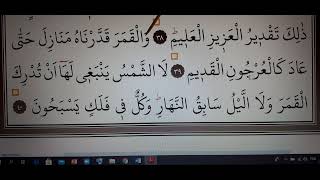 ذٰلِكَ تَقْدِيرُ الْعَزِيزِ الْعَلِيمِۜ ﴿٣٨﴾ وَالْقَمَرَ قَدَّرْنَاهُ مَنَازِلَ حَتّٰى
عَادَ كَالْعُرْجُونِ الْقَدِيمِ ﴿٣٩﴾ لَا الشَّمْسُ يَنْبَغِى لَهَٓا اَنْ تُدْرِكَ
الْقَمَرَ وَلَا الَّيْلُ سَابِقُ النَّهَارِۜ وَكُلٌّ فِى فَلَكٍ يَسْبَحُونَ ﴿٤٠﴾